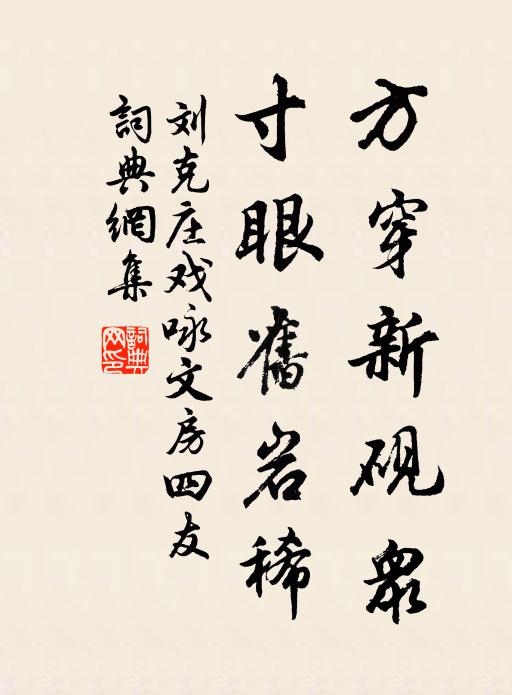 方穿新砚眾
寸眼舊岩稀
刘克庄戏咏文房四友
詞典網集
詞典網印